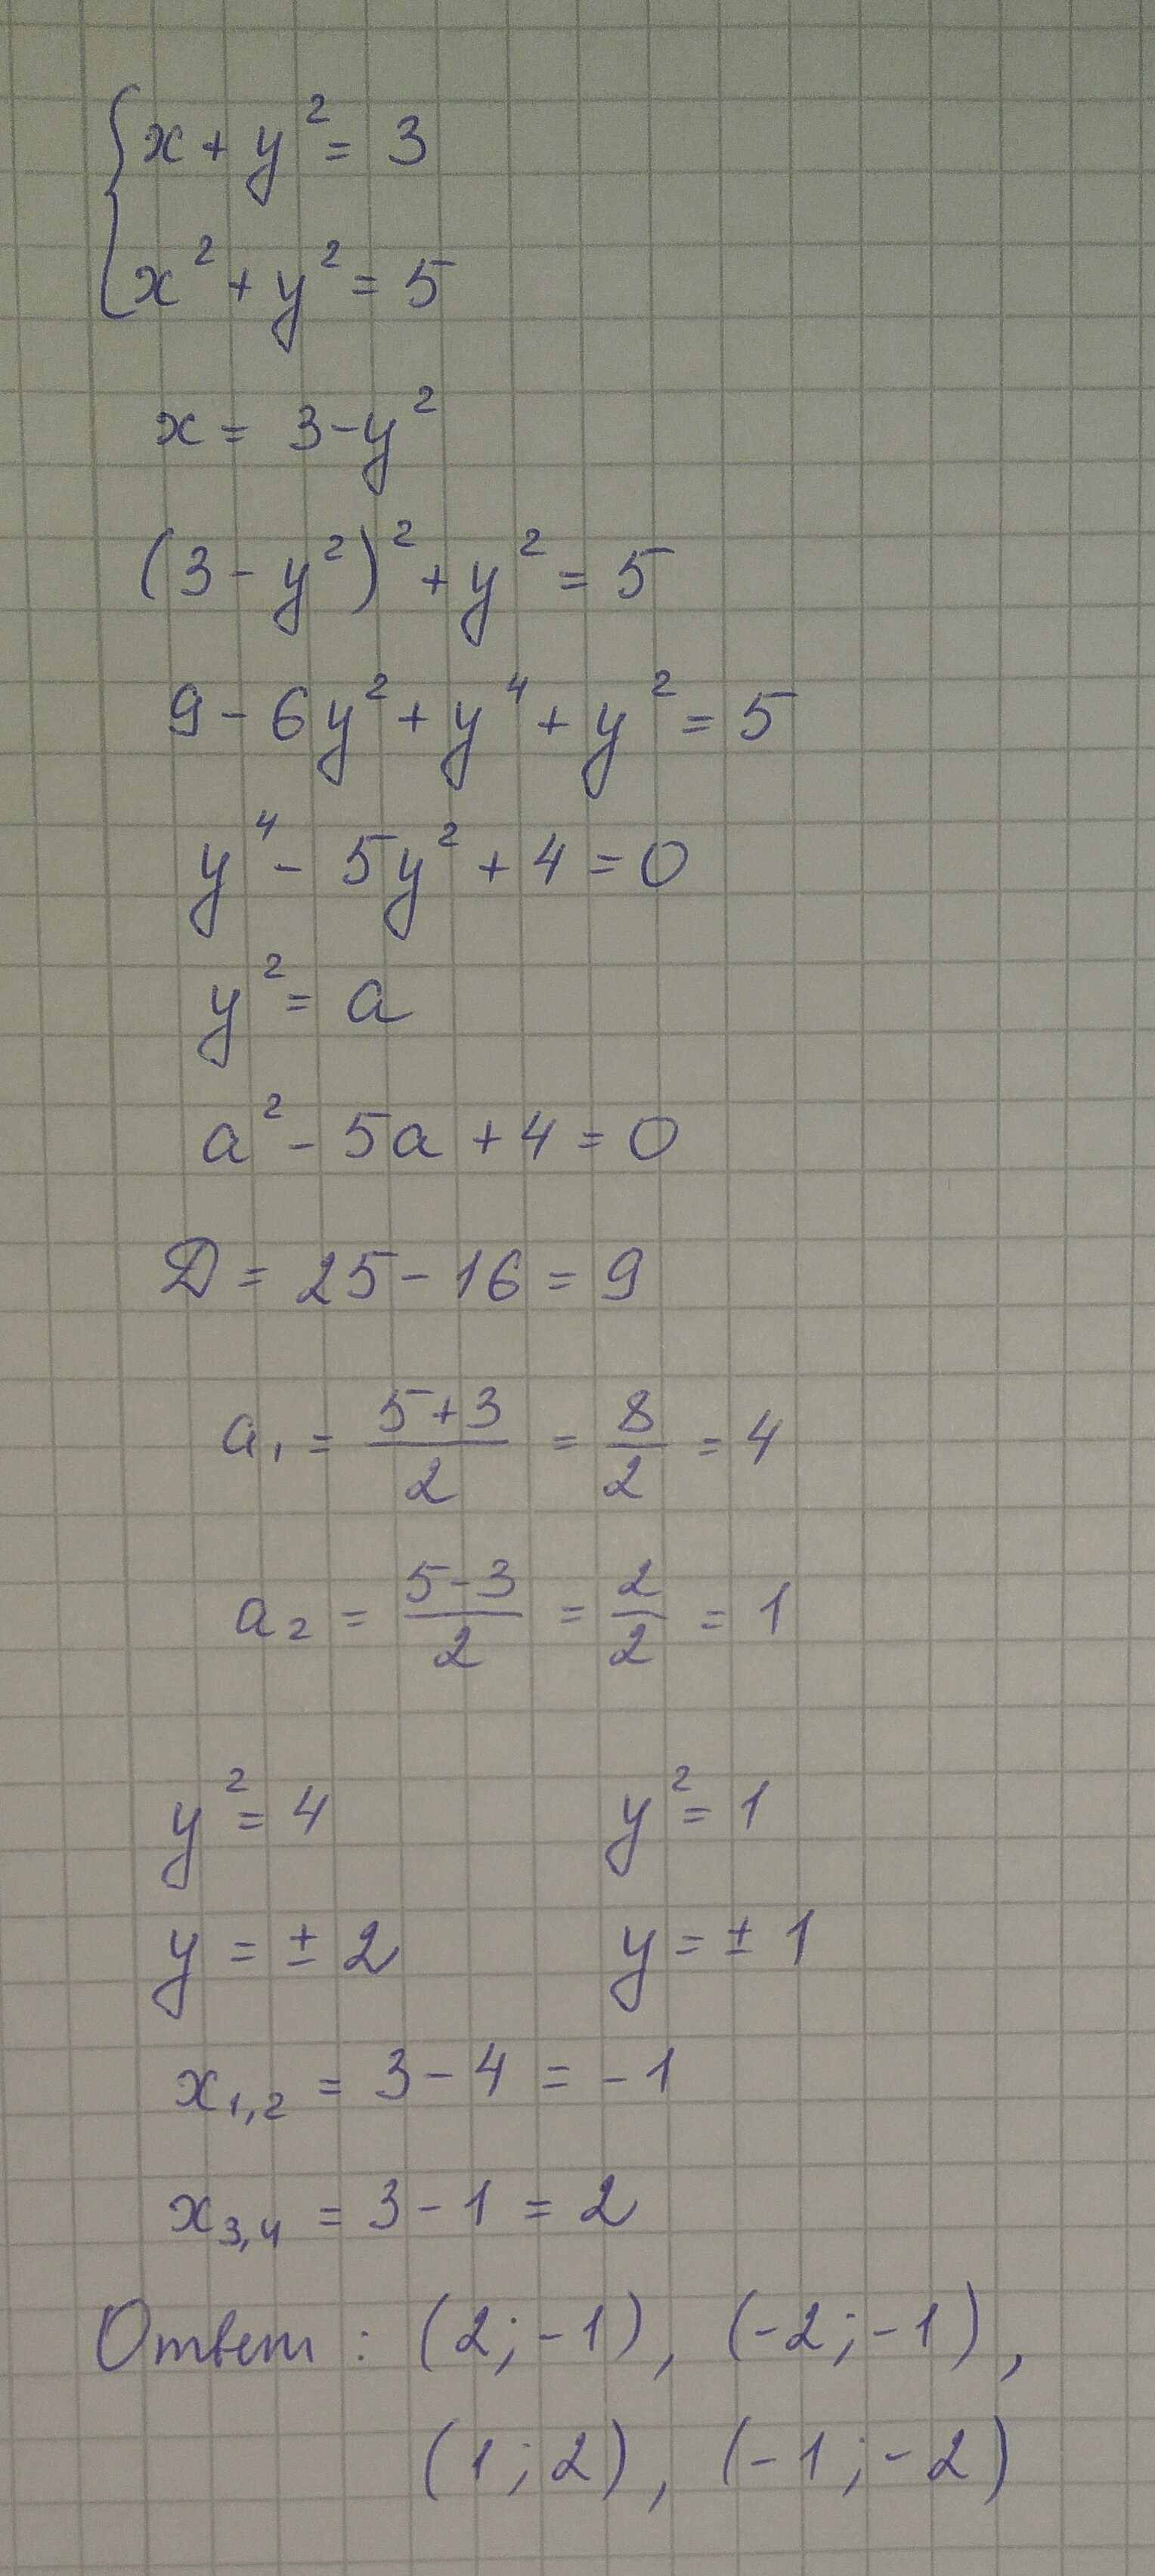 { x + y² = 3
x² + y² = 5
x = 3 - y²
(3 - y²)² + y² = 5
9 - 6y² + y⁴ + y² = 5
y⁴ - 5y² + 4 = 0
y² = a
a² - 5a + 4 = 0
D = 25 - 16 = 9
a₁ = (5+3)/2 = 8/2 = 4
a₂ = (5-3)/2 = 2/2 = 1
y² = 4 y² = 1
y = ± 2 y = ± 1
x₁,₂ = 3 - 4 = -1
x₃,₄ = 3 - 1 = 2
Ответ: (2; -1), (-2; -1),
(1; 2), (-1; -2)